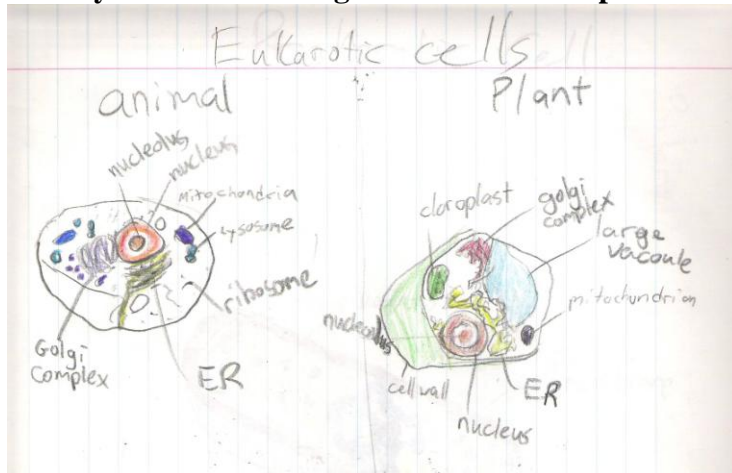 Eukarotic cells
animal
nucleolus
nucleus
mitochondria
lysosome
ribosome
Golgi
Complex
ER
Plant
cloroplast
golgi
complex
large
vacoule
mitochondrion
nucleolus
cell wall
ER
nucleus